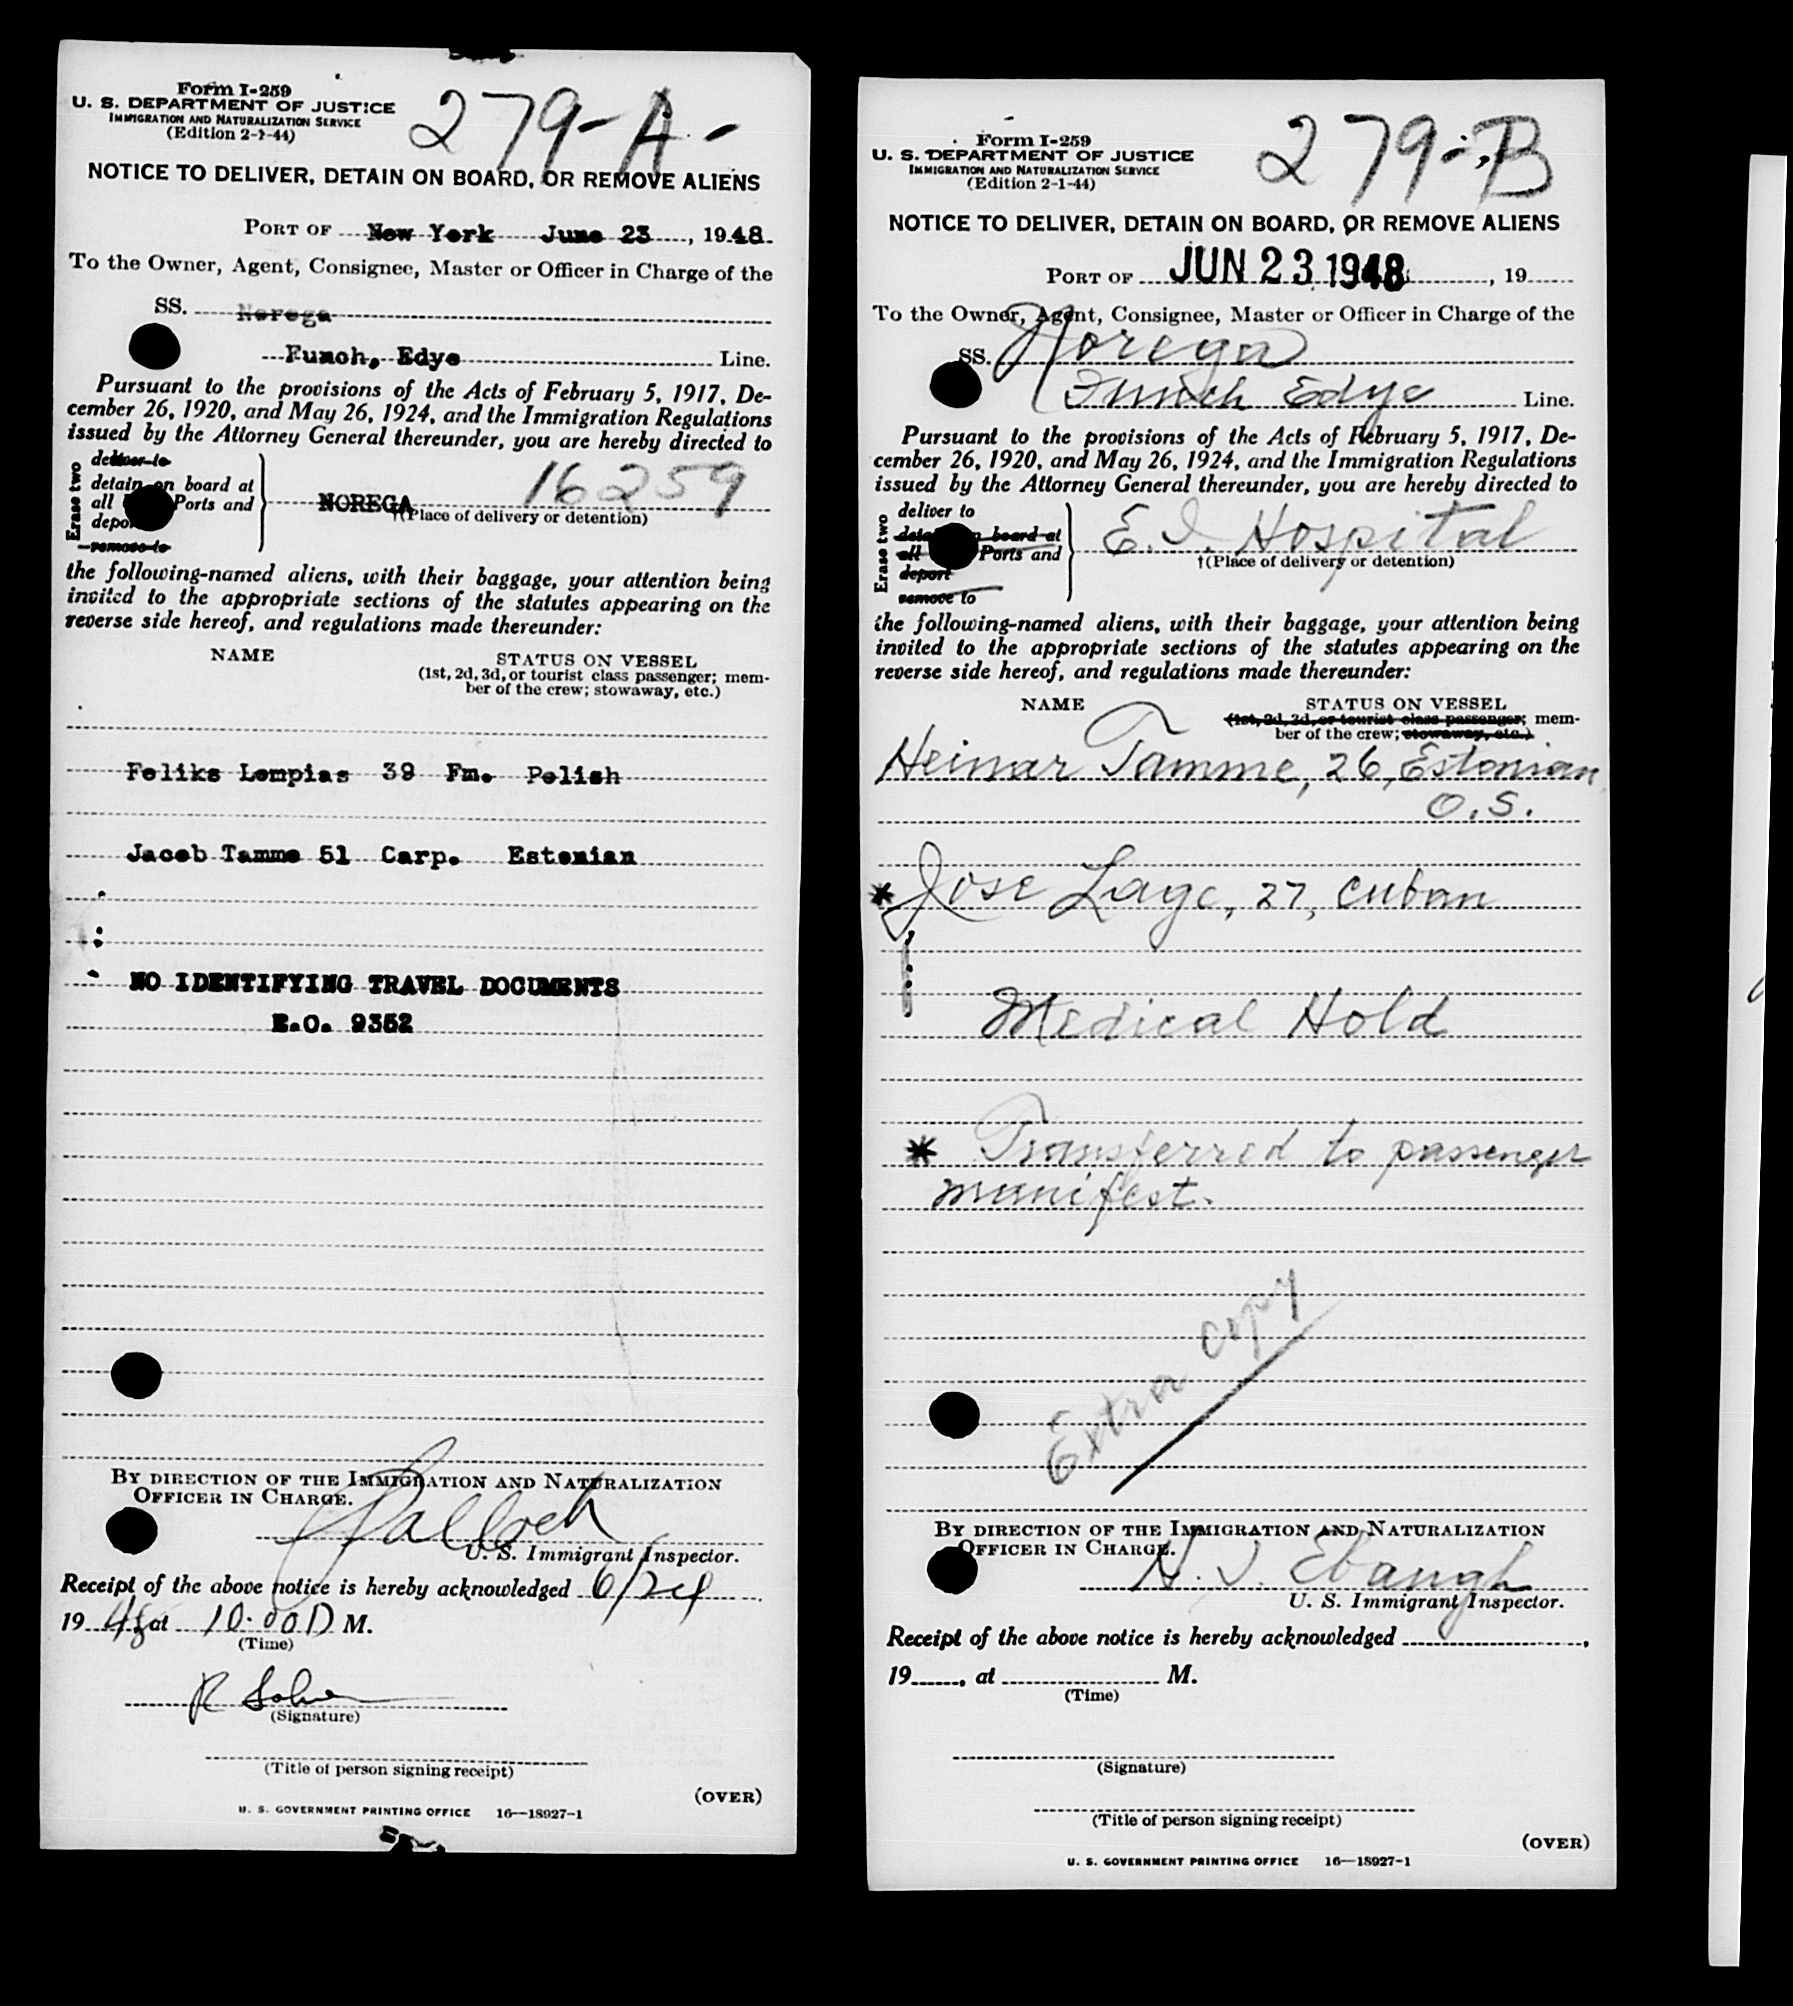 Form I-259
U. S. DEPARTMENT OF JUSTICE
IMMIGRATION AND NATURALIZATION SERVICE
(Edition 2-1-44)
279-A-
NOTICE TO DELIVER, DETAIN ON BOARD, OR REMOVE ALIENS
PORT OF New York June 23, 1948
To the Owner, Agent, Consignee, Master or Officer in Charge of the
SS. Norega
Funch, Edye Line.
Pursuant to the provisions of the Acts of February 5, 1917, De-
cember 26, 1920, and May 26, 1924, and the Immigration Regulations
issued by the Attorney General thereunder, you are hereby directed to
Erase two
deliver to
detain on board at
all Ports and
depor
remove to
NOREGA
16259
†(Place of delivery or detention)
the following-named aliens, with their baggage, your attention being
invited to the appropriate sections of the statutes appearing on the
reverse side hereof, and regulations made thereunder:
NAME
STATUS ON VESSEL
(1st, 2d, 3d, or tourist class passenger; mem-
ber of the crew; stowaway, etc.)
Feliks Lempias 39 Fm. Polish
Jacob Tamme 51 Carp. Estonian
NO IDENTIFYING TRAVEL DOCUMENTS
E.O. 9352
BY DIRECTION OF THE IMMIGRATION AND NATURALIZATION
OFFICER IN CHARGE.
U. S. Immigrant Inspector.
Receipt of the above notice is hereby acknowledged 6/24
1948 at 10:00 M.
(Time)
R
(Signature)
(Title of person signing receipt)
(OVER)
U. S. GOVERNMENT PRINTING OFFICE 16—18927-1
Form I-259
U. S. DEPARTMENT OF JUSTICE
IMMIGRATION AND NATURALIZATION SERVICE
(Edition 2-1-44)
279-B
NOTICE TO DELIVER, DETAIN ON BOARD, OR REMOVE ALIENS
PORT OF JUN 23 1948, 19
To the Owner, Agent, Consignee, Master or Officer in Charge of the
SS. Norega
Funch Edye Line.
Pursuant to the provisions of the Acts of February 5, 1917, De-
cember 26, 1920, and May 26, 1924, and the Immigration Regulations
issued by the Attorney General thereunder, you are hereby directed to
Erase two
deliver to
board at
all Ports and
deport
remove to
E. I. Hospital
†(Place of delivery or detention)
the following-named aliens, with their baggage, your attention being
invited to the appropriate sections of the statutes appearing on the
reverse side hereof, and regulations made thereunder:
NAME
STATUS ON VESSEL
(1st, 2d, 3d, or tourist class passenger; mem-
ber of the crew; stowaway, etc.)
Heimar Tamme, 26, Estonian
O.S.
* Jose Lage, 27, Cuban
Medical Hold
* Transferred to passenger
manifest.
Extra copy
BY DIRECTION OF THE IMMIGRATION AND NATURALIZATION
OFFICER IN CHARGE.
H. J. Ebaugh
U. S. Immigrant Inspector.
Receipt of the above notice is hereby acknowledged ,
19 , at M.
(Time)
(Signature)
(Title of person signing receipt)
(OVER)
U. S. GOVERNMENT PRINTING OFFICE 16—18927-1